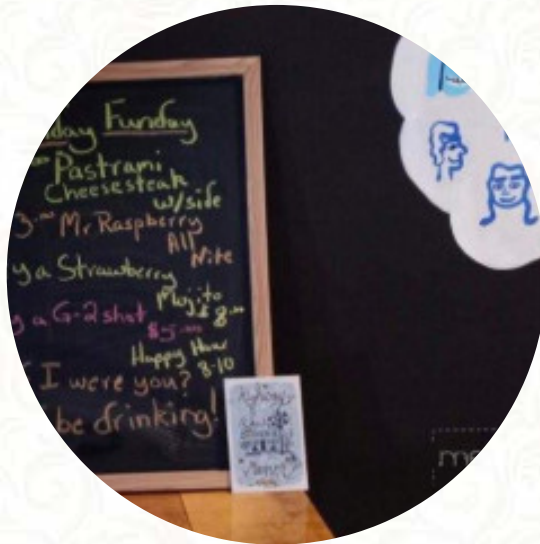 day Funday
Pastrami
Cheesesteak
w/side
3.00 Mr Raspberry
All
Nite
y a Strawberry
Mojito
$8.00
y a G-2 shot
$5.00
Happy Hour
8-10
I were you?
be drinking!